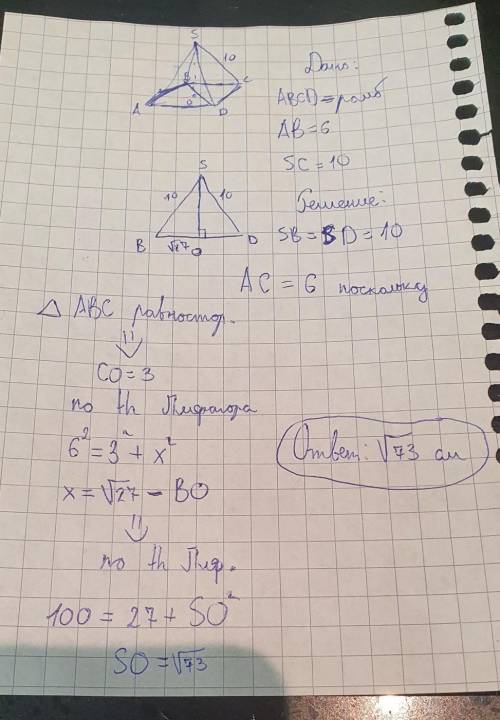 S
10
B
C
A
O
D
Дано:
ABCD = ромб
AB = 6
SC = 10
S
10
10
B
√27
O
D
Решение:
SB = BD = 10
AC = 6 поскольку
△ ABC равностор.
⇓
CO = 3
по th Пифагора
6² = 3² + x²
x = √27 - BO
⇓
по th Пиф.
100 = 27 + SO²
SO = √73
Ответ: √73 см